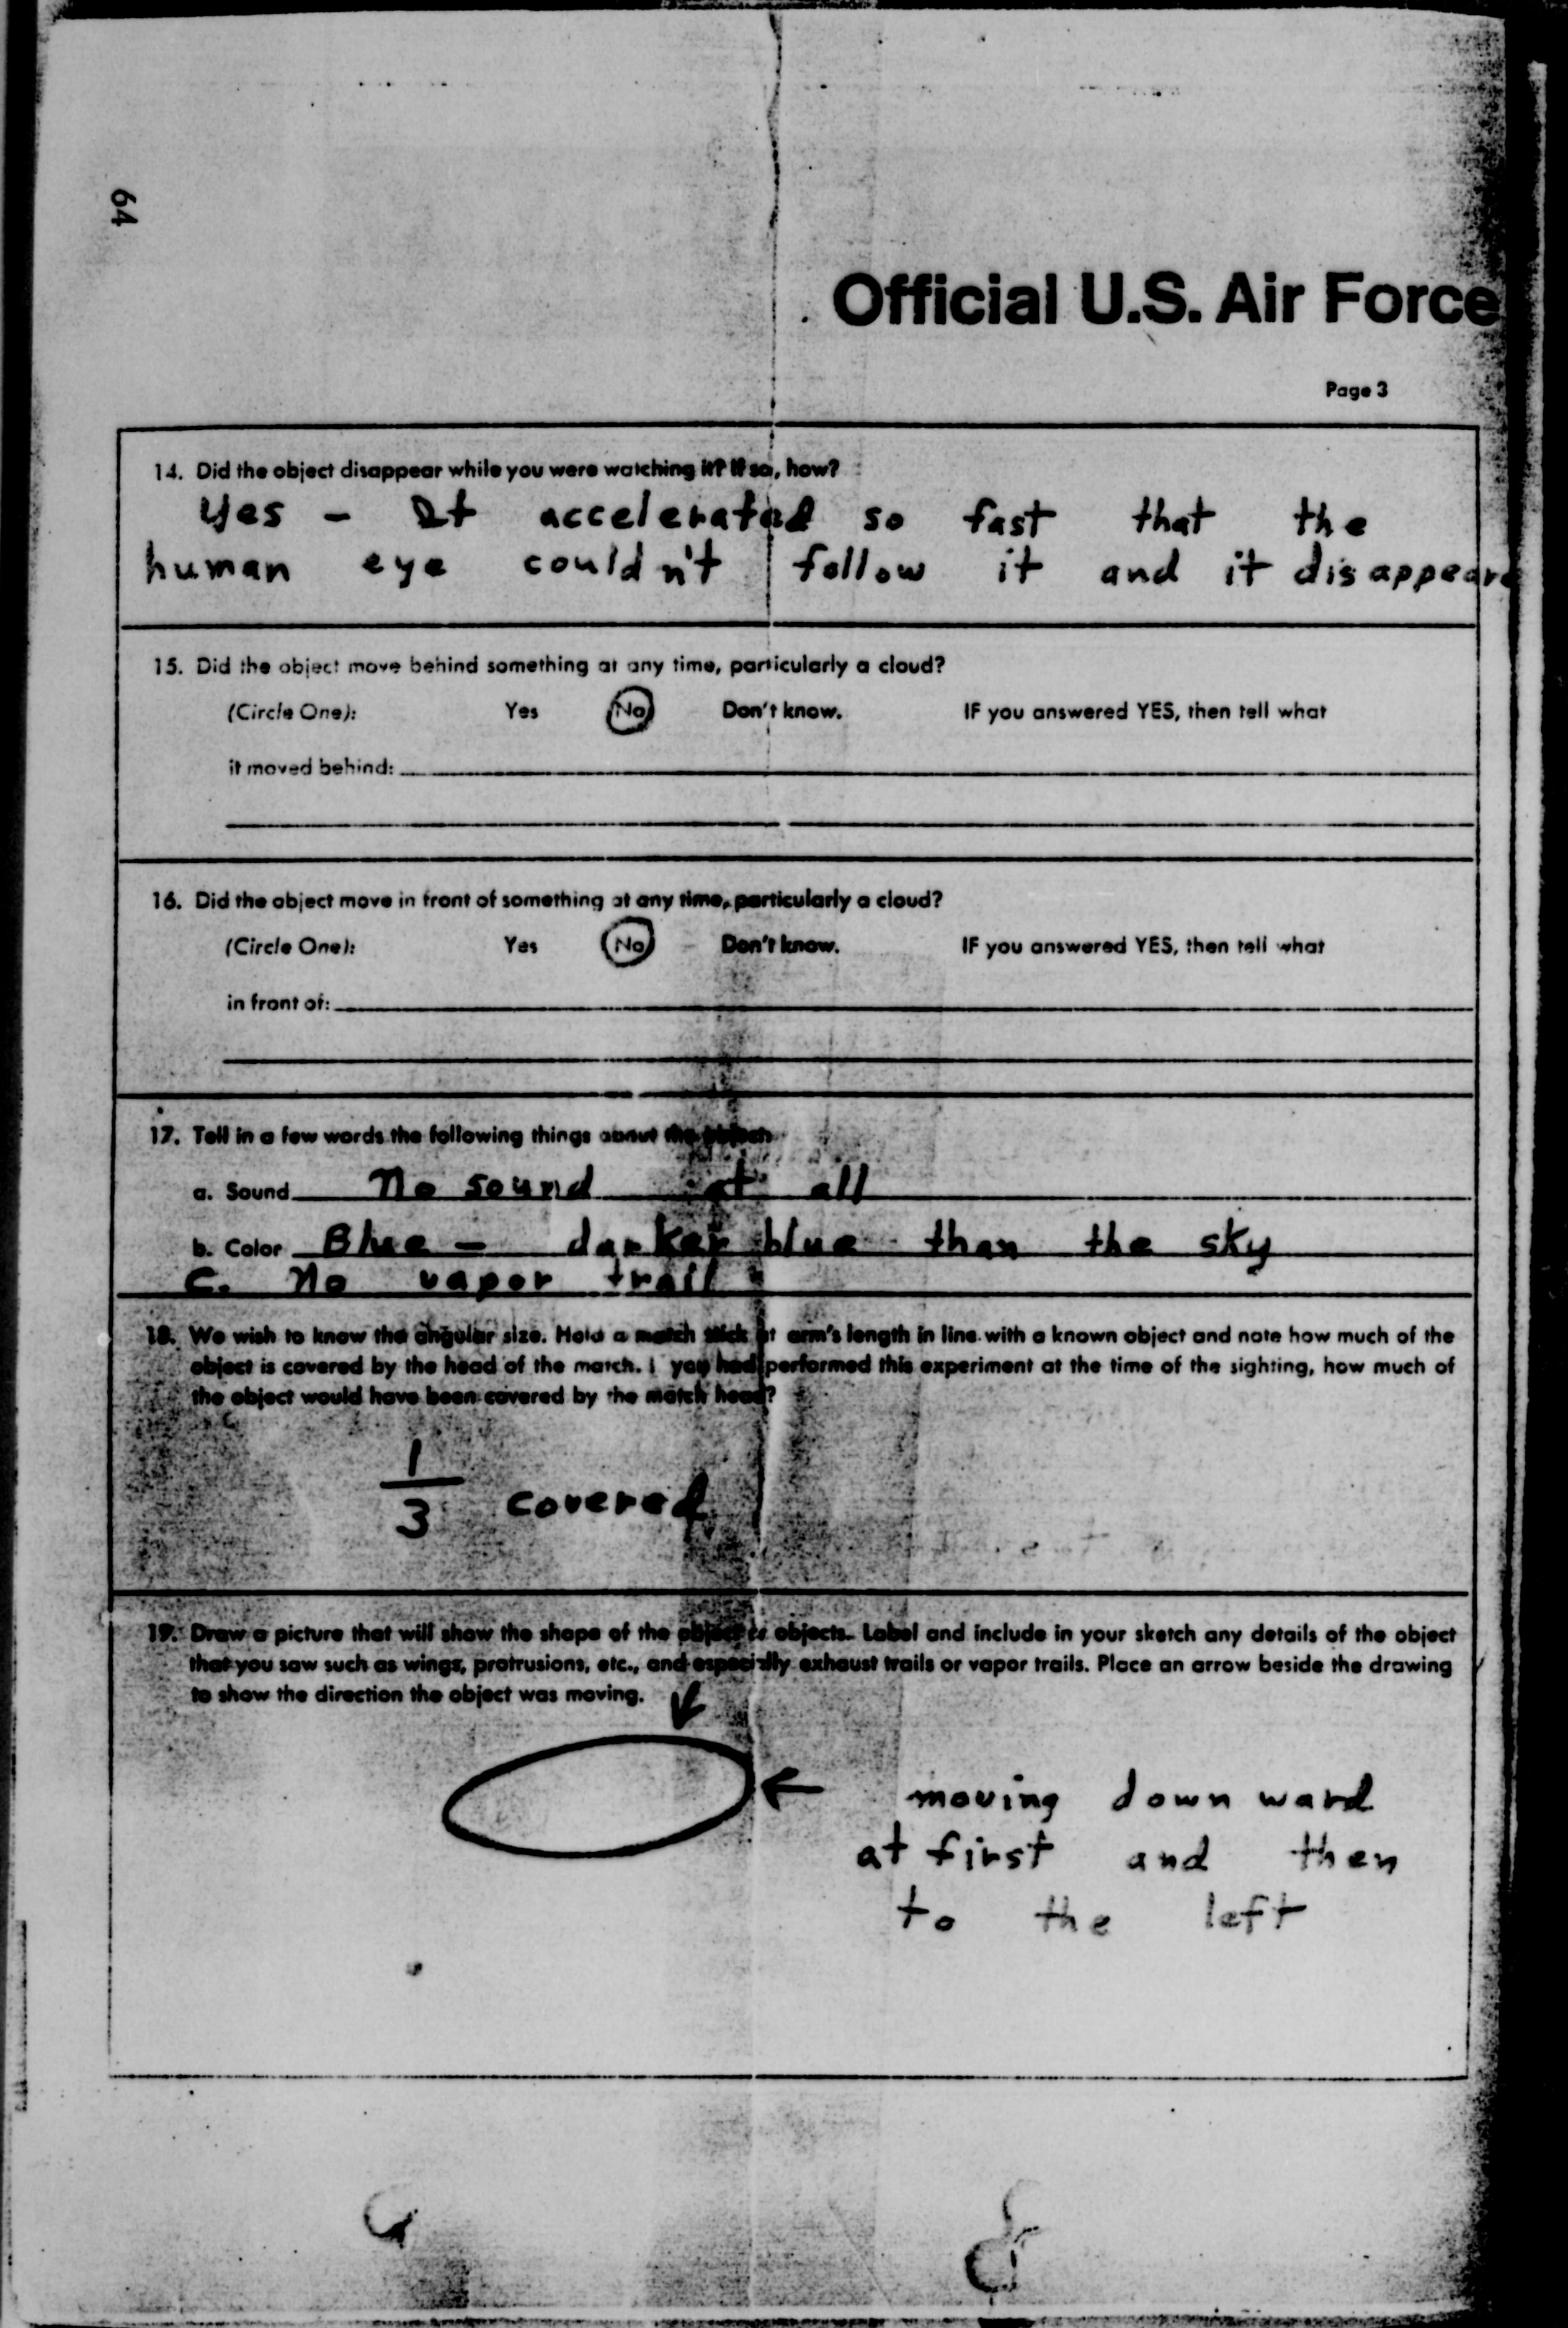 64
Official U.S. Air Force
Page 3
14. Did the object disappear while you were watching it? If so, how?
Yes - It accelerated so fast that the
human eye couldn't follow it and it disappeare
15. Did the object move behind something at any time, particularly a cloud?
(Circle One): Yes No Don't know. IF you answered YES, then tell what
it moved behind:
16. Did the object move in front of something at any time, particularly a cloud?
(Circle One): Yes No Don't know. IF you answered YES, then tell what
in front of:
17. Tell in a few words the following things about the object
a. Sound No sound at all
b. Color Blue - darker blue than the sky
C. No vapor trail
18. We wish to know the angular size. Hold a match stick at arm's length in line with a known object and note how much of the
object is covered by the head of the match. I you had performed this experiment at the time of the sighting, how much of
the object would have been covered by the match head?
1/3 covered
19. Draw a picture that will show the shape of the object or objects. Label and include in your sketch any details of the object
that you saw such as wings, protrusions, etc., and especially exhaust trails or vapor trails. Place an arrow beside the drawing
to show the direction the object was moving.
moving down ward
at first and then
to the left